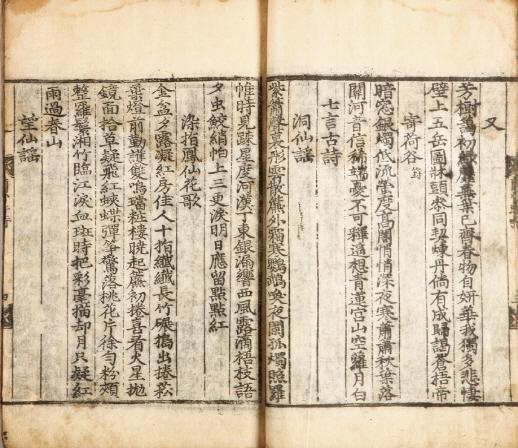 又
芳樹藹初綠蘼蕪葉已齊春物自姸華我獨多悲悽
壁上五岳圖牀頭參同契煉丹倘有成歸謁蒼梧帝
寄荷谷
暗窓銀燭低流螢度高閣悄悄深夜寒蕭蕭秋葉落
關河音信稀端憂不可釋遙想靑蓮宮山空蘿月白
七言古詩
洞仙謠
紫簫聲裏彤雲散簾外霜寒鸚鵡喚夜闌孤燭照羅
帷時見踈星度河漢丁東銀漏響西風露滴梧枝語
夕虫鮫綃帕上三更淚明日應留點點紅
染指鳳仙花歌
金盆夕露凝紅房佳人十指纖纖長竹碾搗出捲菘
葉燈前勤護雙鳴璫粧樓曉起簾初捲喜看火星抛
鏡面拾草疑飛紅蛺蝶彈箏驚落桃花片徐勻粉頰
整羅鬟湘竹臨江淚血斑時把彩毫描却月只疑紅
雨過春山
望仙謠